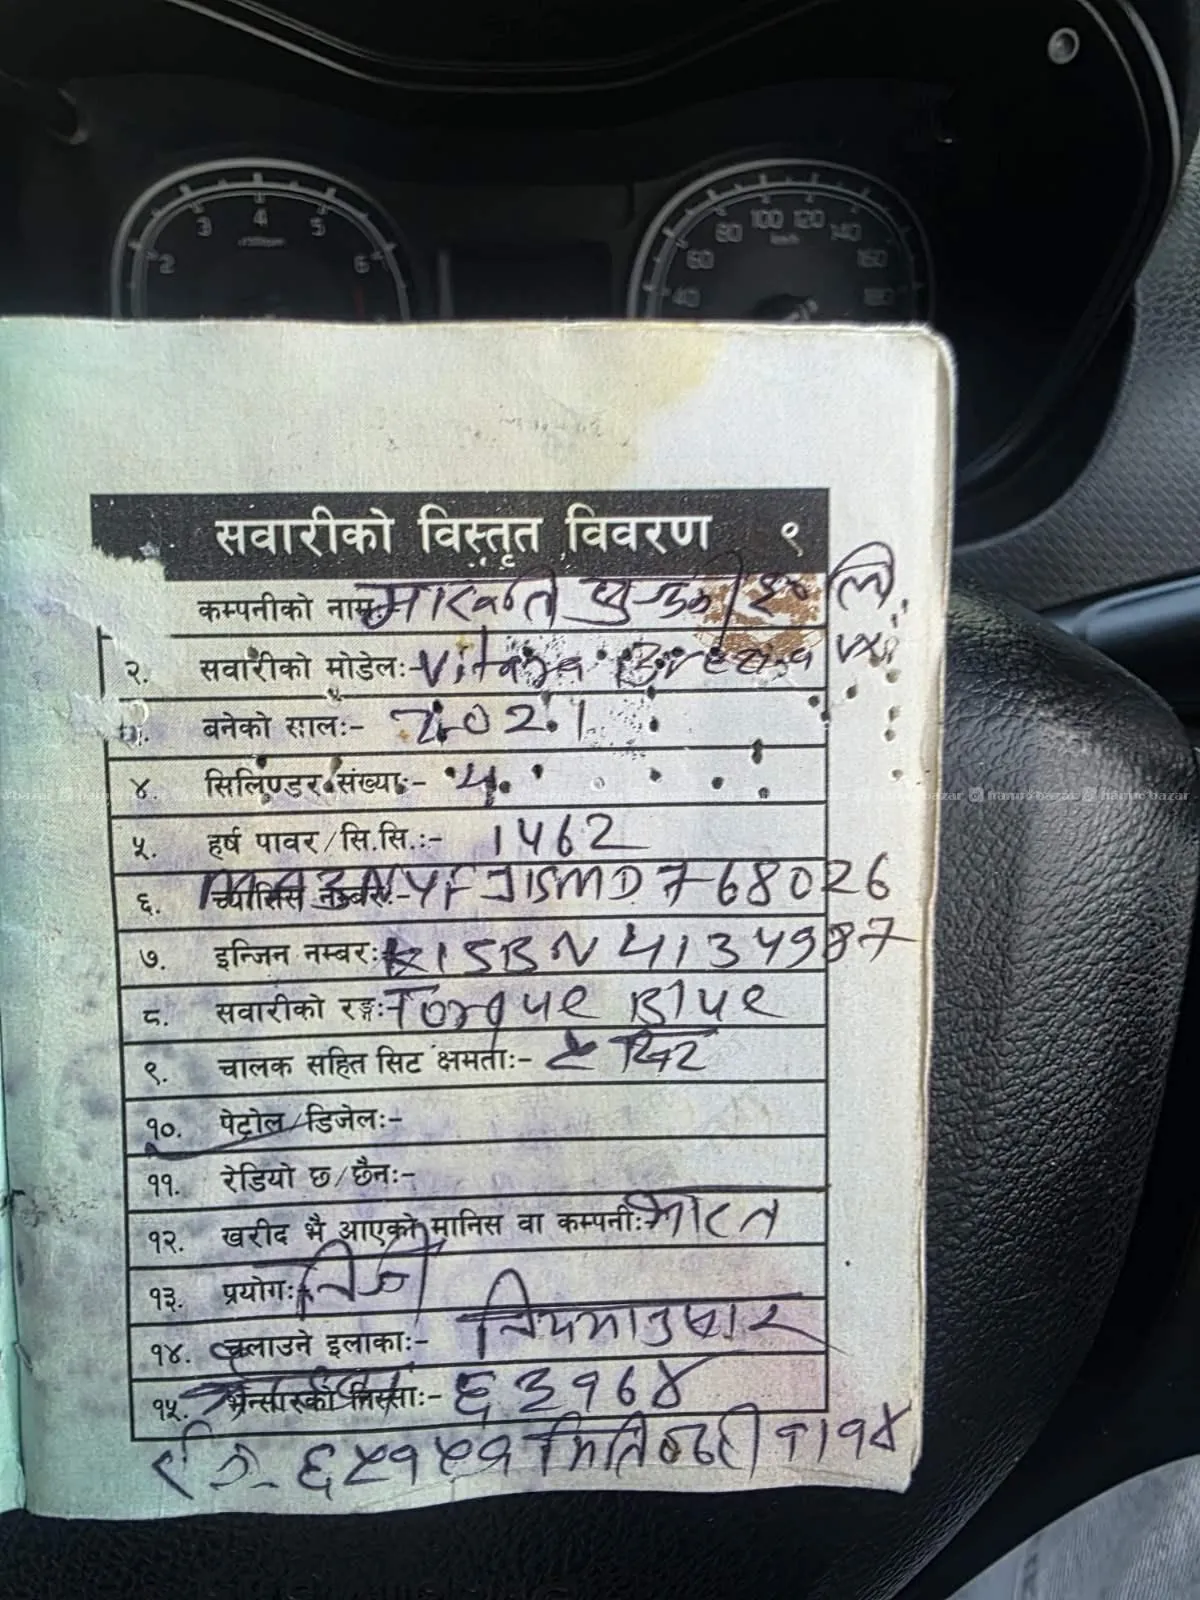 3 4 5
2 6
80 100 120 140
60 160
40 180
सवारीको विस्तृत विवरण ९
कम्पनीको नाम मारुती सुजुकी इ० लि.
२. सवारीको मोडेलः- Vitara Brezza VXI
बनेको सालः- 2021
४. सिलिण्डर संख्याः- ४
५. हर्ष पावर/सि.सि.ः- 1462
६. च्यासिस नम्बरः- MA3NYFJ1SMD768026
७. इन्जिन नम्बरः K15BN4134987
८. सवारीको रङ्गः- Torque Blue
९. चालक सहित सिट क्षमताः- सिट
१०. पेट्रोल/डिजेलः-
११. रेडियो छ/छैनः-
१२. खरीद भै आएको मानिस वा कम्पनीः- भारत
१३. प्रयोगः- निजी
१४. चलाउने इलाकाः- नियमानुसार
१५. भन्सारको निस्साः- ६३१६४
मिति १।१४
hamrobazar hamrobazar